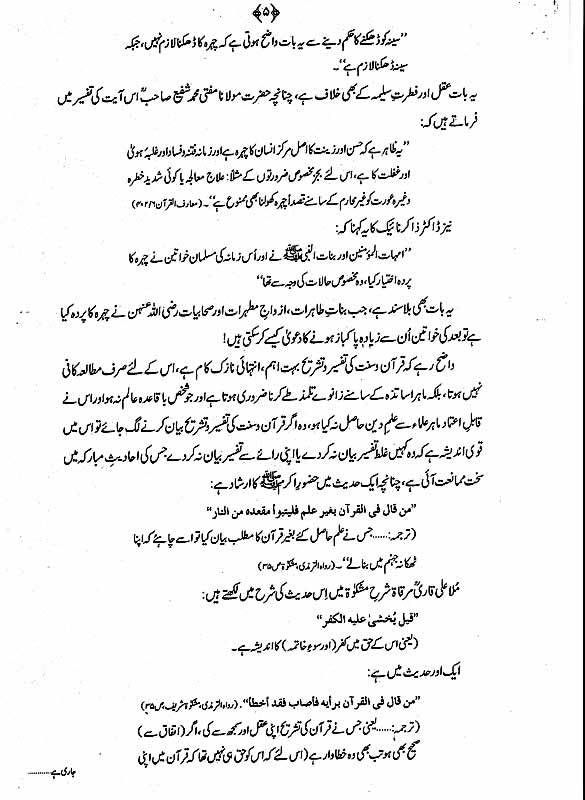 ﴿۵﴾
”سینہ کو ڈھکنے کا حکم دینے سے یہ بات واضح ہوتی ہے کہ چہرہ کا ڈھکنا لازم نہیں، جبکہ
سینہ ڈھکنا لازم ہے“۔
یہ بات عقل اور فطرتِ سلیمہ کے بھی خلاف ہے، چنانچہ حضرت مولانا مفتی محمد شفیع صاحبؒ اس آیت کی تفسیر میں
فرماتے ہیں کہ:
”یہ ظاہر ہے کہ حسن اور زینت کا اصل مرکز انسان کا چہرہ ہے اور زمانہ فتنہ و فساد اور غلبۂ ہویٰ
اور غفلت کا ہے، اس لئے بجز مخصوص ضرورتوں کے مثلاً: علاج معالجہ یا کوئی شدید خطرہ
وغیرہ عورت کو غیر محارم کے سامنے قصداً چہرہ کھولنا بھی ممنوع ہے“۔ (معارف القرآن ۶/۴۰۲)
نیز ڈاکٹر ذاکر نائیک کا یہ کہنا کہ:
”امہات المؤمنین اور بنات النبی ﷺ نے اور اُس زمانہ کی مسلمان خواتین نے چہرہ کا
پردہ اختیار کیا، وہ مخصوص حالات کی وجہ سے تھا“
یہ بات بھی بلا سند ہے، جب بناتِ طاہرات، ازواجِ مطہرات اور صحابیات رضی اللہ عنہن نے چہرہ کا پردہ کیا
ہے تو بعد کی خواتین اُن سے زیادہ پاکباز ہونے کا دعویٰ کیسے کر سکتی ہیں!
واضح رہے کہ قرآن و سنت کی تفسیر و تشریح بہت اہم، انتہائی نازک کام ہے، اس کے لئے صرف مطالعہ کافی
نہیں ہوتا، بلکہ ماہر اساتذہ کے سامنے زانوے تلمذ طے کرنا ضروری ہوتا ہے اور جو شخص باقاعدہ عالم نہ ہو اور اس نے
قابلِ اعتماد ماہر علماء سے علمِ دین حاصل نہ کیا ہو، وہ اگر قرآن و سنت کی تفسیر و تشریح بیان کرنے لگ جائے تو اس میں
قوی اندیشہ ہے کہ وہ کہیں غلط تفسیر بیان نہ کر دے یا اپنی رائے سے تفسیر بیان نہ کر دے جس کی احادیث مبارکہ میں
سخت ممانعت آئی ہے، چنانچہ ایک حدیث میں حضور اکرم ﷺ کا ارشاد ہے:
”من قال فی القرآن بغیر علم فلیتبوأ مقعدہ من النار“
(ترجمہ:......جس نے علم حاصل کئے بغیر قرآن کا مطلب بیان کیا تو اسے چاہئے کہ اپنا
ٹھکانہ جہنم میں بنالے“۔ (رواہ الترمذی، مشکوٰۃ ص:۳۵)
مُلا علی قاریؒ مرقاۃ شرح مشکوٰۃ میں اِس حدیث کی شرح میں لکھتے ہیں:
”قیل یُخشیٰ علیہ الکفر“
(یعنی اس کے حق میں کفر (اور سوءِ خاتمہ) کا اندیشہ ہے۔
ایک اور حدیث میں ہے:
”من قال فی القرآن برأیہ فأصاب فقد أخطأ“۔ (رواہ الترمذی، مشکوٰۃ شریف، ص:۳۵)
(ترجمہ:......یعنی جس نے قرآن کی تشریح اپنی عقل اور سمجھ سے کی، اگر (اتفاق سے)
صحیح بھی ہو تب بھی وہ خطاوار ہے (اس لئے کہ اس کو حق ہی نہیں تھا کہ قرآن میں اپنی
جاری ہے ..........